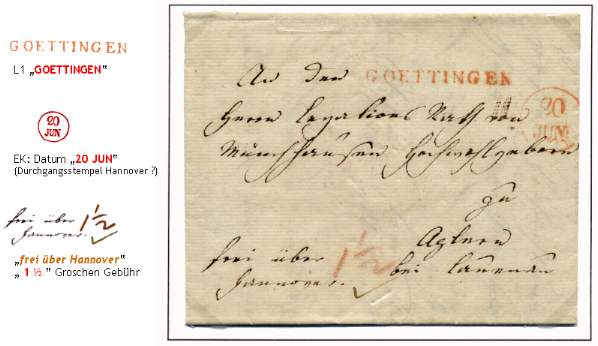 GOETTINGEN
L1 „GOETTINGEN“
20
JUN
EK: Datum „20 JUN“
(Durchgangsstempel Hannover ?)
frei über
Hannover.
1½
„frei über Hannover“
„ 1 ½ “ Groschen Gebühr
An den
GOETTINGEN
20
JUN:
Herrn Legations Rath von
Münchhausen Hochwohlgeboren
zu
Apelern
bei Lauenau
frei über
Hannover.
1½